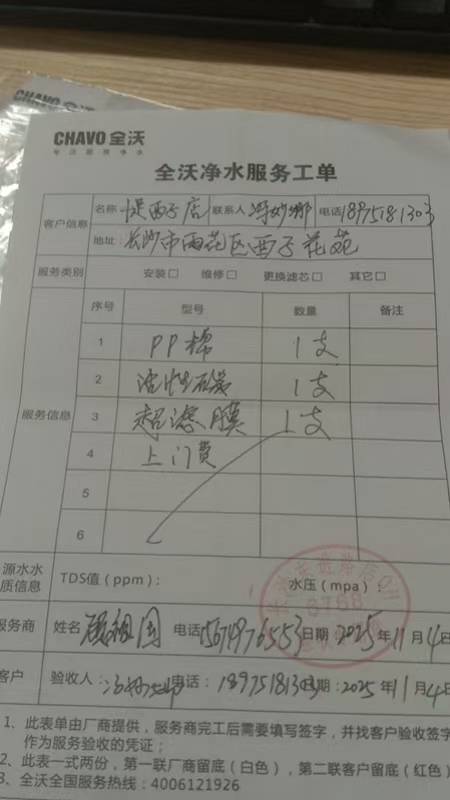 CHAVO全沃
CHAVO全沃
专注厨房净水
全沃净水服务工单
客户信息 名称 西子店 联系人 电话 18975181303
地址：长沙市雨花区西子花苑
服务类别 安装□ 维修□ 更换滤芯□ 其它□
服务信息
序号 型号 数量 备注
1 PP棉 1支
2 活性碳 1支
3 超滤膜 1支
4 上门费
5
6
源水水质信息 TDS值（ppm）： 水压（mpa）：
服务商 姓名 电话 15674976553 日期 2025年11月4日
客户 验收人： 电话： 18975181303 期：2025年11月4日
1、此表单由厂商提供，服务商完工后需要填写签字，并找客户验收签字
作为服务验收的凭证；
2、此表一式两份，第一联厂商留底（白色），第二联客户留底（红色）
3、全沃全国服务热线：4006121926